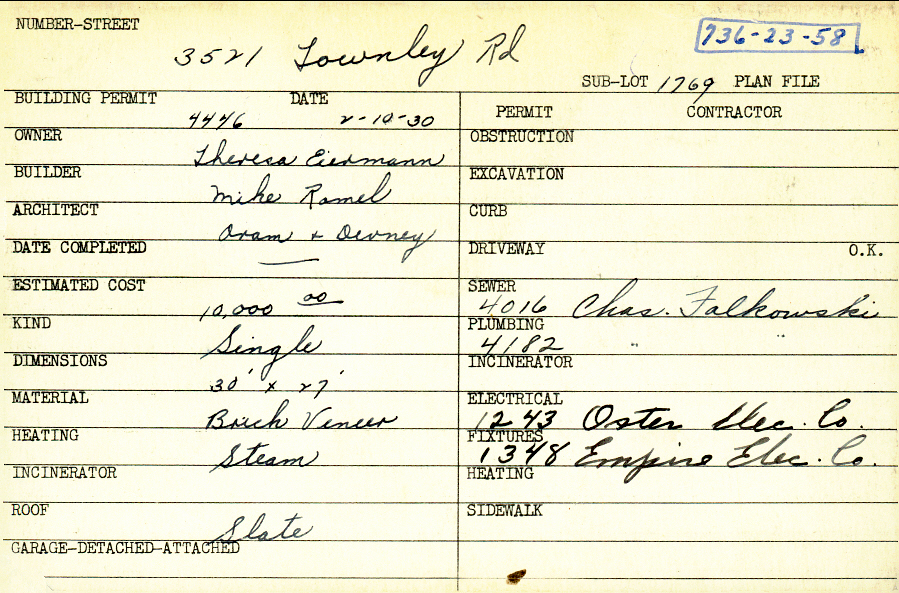 NUMBER-STREET
3521 Townley Rd
736-23-58
SUB-LOT 1769 PLAN FILE
BUILDING PERMIT DATE
4446 2-10-30
OWNER
Theresa Eiermann
BUILDER
Mike Ramel
ARCHITECT
Oram & Devney
DATE COMPLETED
—
ESTIMATED COST
10,000 00
KIND
Single
DIMENSIONS
30' x 27'
MATERIAL
Brick Veneer
HEATING
Steam
INCINERATOR
ROOF
Slate
GARAGE-DETACHED-ATTACHED
PERMIT CONTRACTOR
OBSTRUCTION
EXCAVATION
CURB
DRIVEWAY O.K.
SEWER
4016 Chas. Falkowski
PLUMBING
4182 " "
INCINERATOR
ELECTRICAL
1243 Oster Elec. Co.
FIXTURES
1348 Empire Elec. Co.
HEATING
SIDEWALK